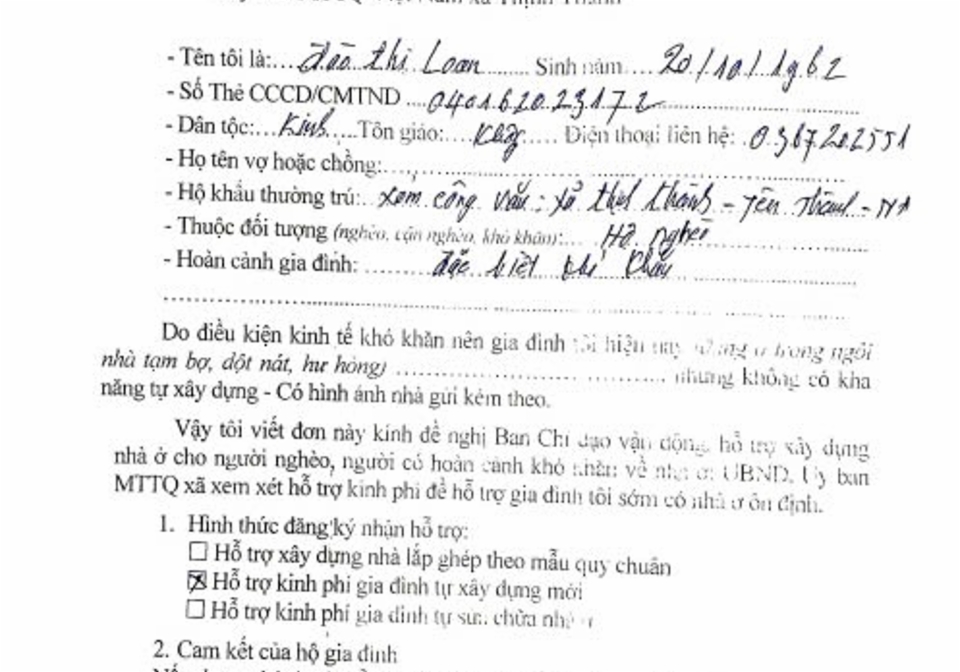 - Tên tôi là:....Đào Thị Loan....... Sinh năm....20/10/1962
- Số Thẻ CCCD/CMTND ....040162023172
- Dân tộc:...Kinh....Tôn giáo:...Không.... Điện thoại liên hệ: .0367202551
- Họ tên vợ hoặc chồng:
- Hộ khẩu thường trú:. xóm công vấu: xã thịnh thành - yên thành - NA
- Thuộc đối tượng (nghèo, cận nghèo, khó khăn):.... Hộ nghèo
- Hoàn cảnh gia đình: ........ đặc biệt khó khăn
Do điều kiện kinh tế khó khăn nên gia đình tôi hiện nay đang ở trong ngôi
nhà tạm bợ, dột nát, hư hỏng) ........ nhưng không có khả
năng tự xây dựng - Có hình ảnh nhà gửi kèm theo.
Vậy tôi viết đơn này kính đề nghị Ban Chỉ đạo vận động, hỗ trợ xây dựng
nhà ở cho người nghèo, người có hoàn cảnh khó khăn về nhà ở; UBND, Ủy ban
MTTQ xã xem xét hỗ trợ kinh phí để hỗ trợ gia đình tôi sớm có nhà ở ổn định.
1. Hình thức đăng ký nhận hỗ trợ:
☐ Hỗ trợ xây dựng nhà lắp ghép theo mẫu quy chuẩn
☒ Hỗ trợ kinh phí gia đình tự xây dựng mới
☐ Hỗ trợ kinh phí gia đình tự sửa chữa nhà ở
2. Cam kết của hộ gia đình